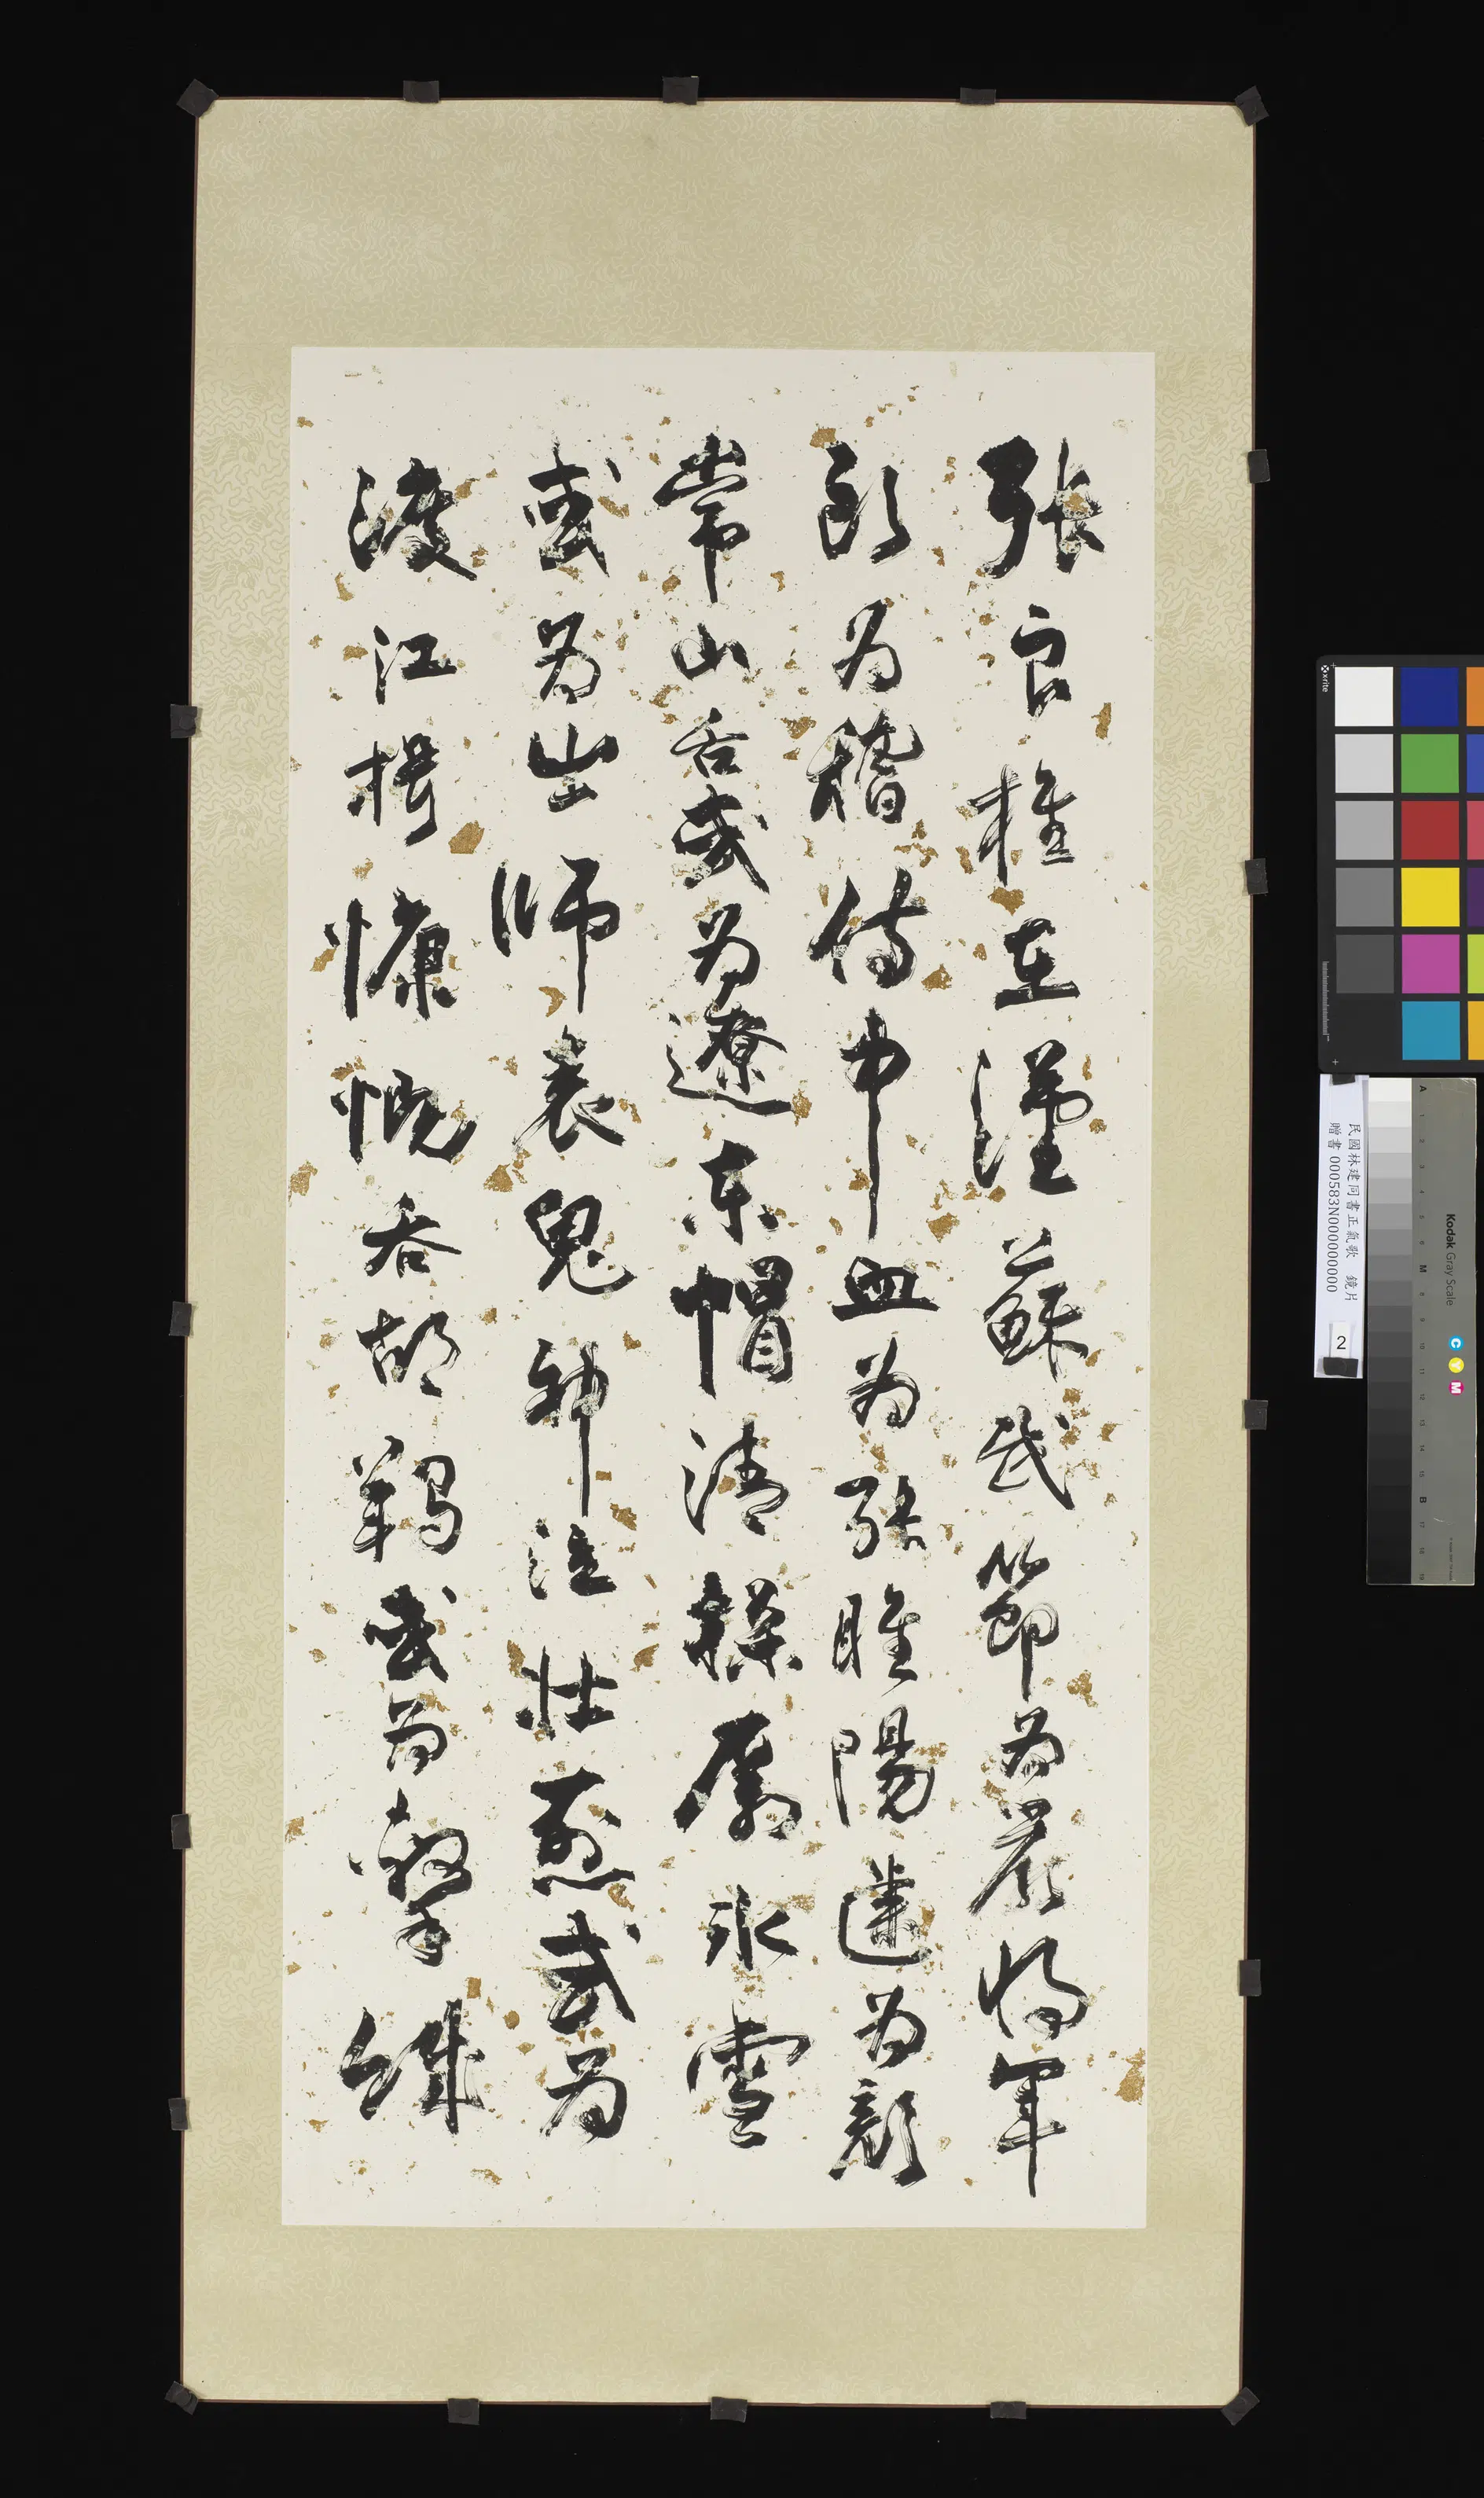 張良椎在漢蘇武節為嚴將軍
頭為稽侍中血為張睢陽齒為顏
常山舌或為遼東帽清操厲冰雪
或為出師表鬼神泣壯烈或為
渡江楫慷慨吞胡羯或為擊賊
民國林建同書正氣歌 鏡片
贈書 000583N000000000
2
xrite
Kodak Gray Scale
C Y M